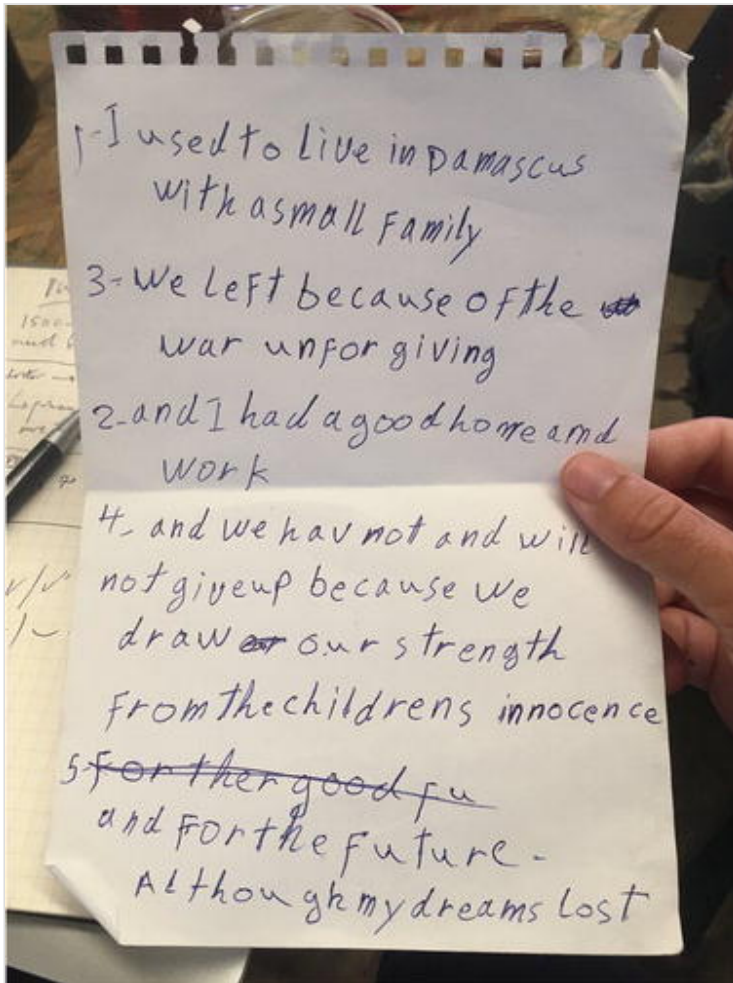 1-I used to live in Damascus
with a small family
3-We left because of the
war unforgiving
2-and I had a good home amd
work
4- and we hav not and will
not give up because we
draw our strength
from the childrens innocence
5- for ther good fu
and for the future-
Although my dreams lost